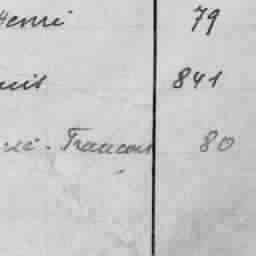 Henri 79
uis 841
rie - Francois 80